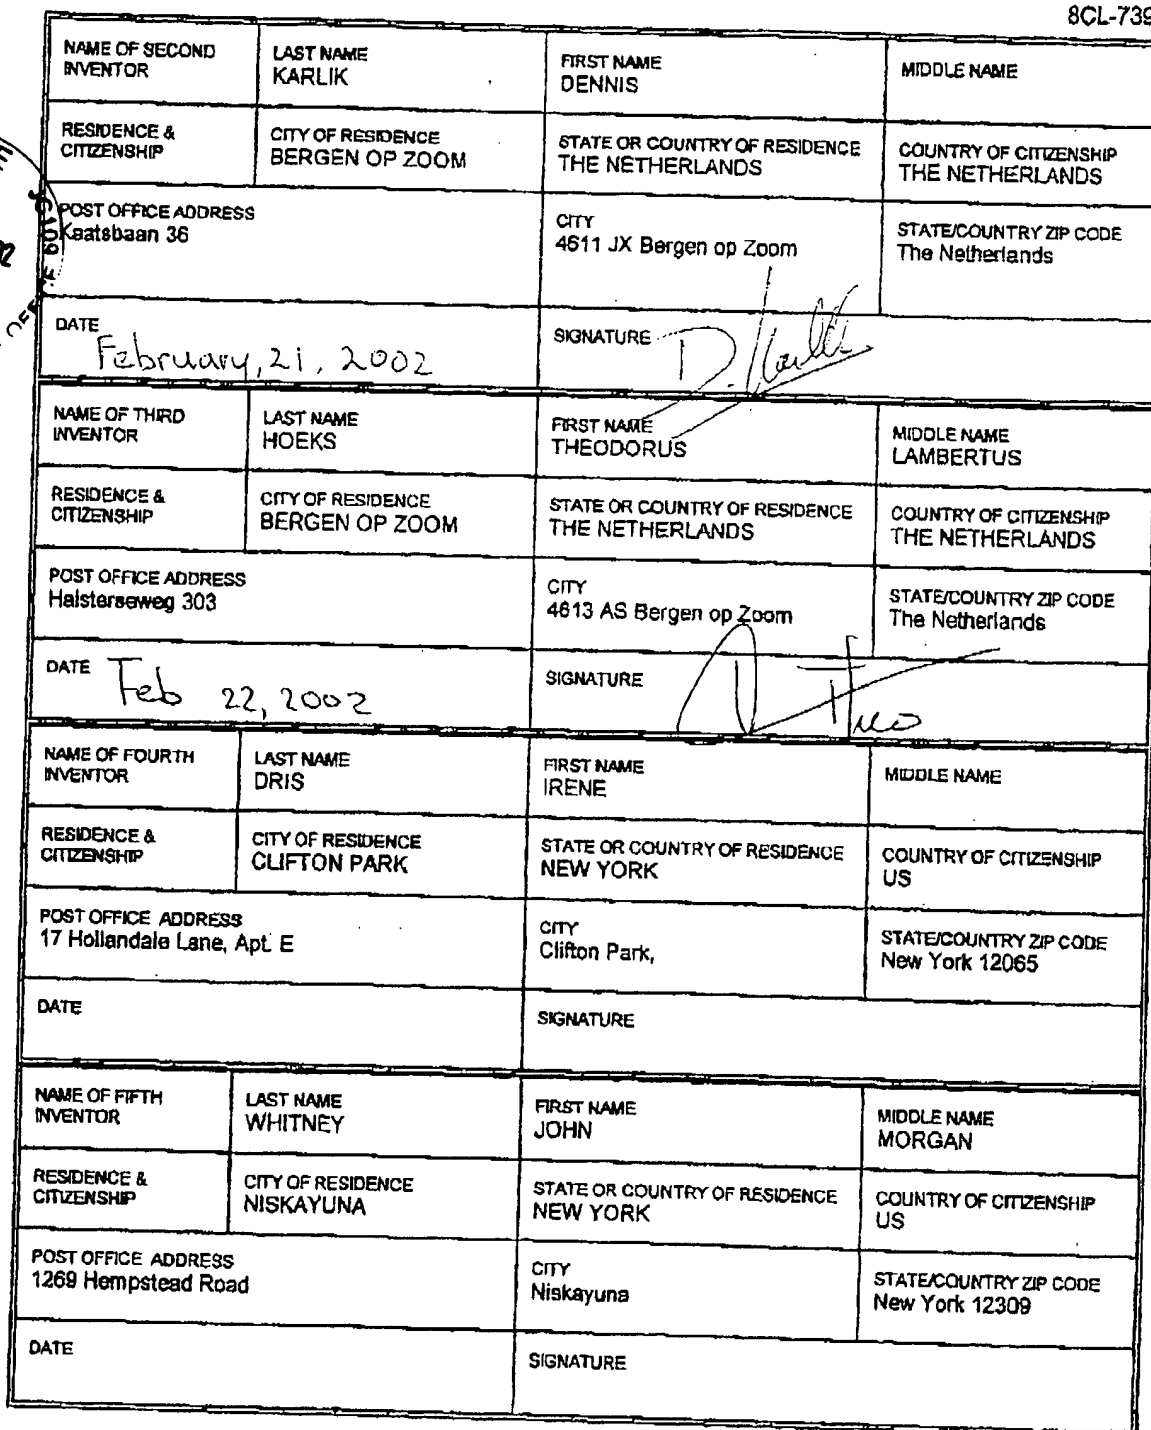 8CL-739
NAME OF SECOND INVENTOR
LAST NAME
KARLIK
FIRST NAME
DENNIS
MIDDLE NAME
RESIDENCE & CITIZENSHIP
CITY OF RESIDENCE
BERGEN OP ZOOM
STATE OR COUNTRY OF RESIDENCE
THE NETHERLANDS
COUNTRY OF CITIZENSHIP
THE NETHERLANDS
POST OFFICE ADDRESS
Kaatsbaan 36
CITY
4611 JX Bergen op Zoom
STATE/COUNTRY ZIP CODE
The Netherlands
DATE
February, 21, 2002
SIGNATURE
NAME OF THIRD INVENTOR
LAST NAME
HOEKS
FIRST NAME
THEODORUS
MIDDLE NAME
LAMBERTUS
RESIDENCE & CITIZENSHIP
CITY OF RESIDENCE
BERGEN OP ZOOM
STATE OR COUNTRY OF RESIDENCE
THE NETHERLANDS
COUNTRY OF CITIZENSHIP
THE NETHERLANDS
POST OFFICE ADDRESS
Halsterseweg 303
CITY
4613 AS Bergen op Zoom
STATE/COUNTRY ZIP CODE
The Netherlands
DATE
Feb 22, 2002
SIGNATURE
NAME OF FOURTH INVENTOR
LAST NAME
DRIS
FIRST NAME
IRENE
MIDDLE NAME
RESIDENCE & CITIZENSHIP
CITY OF RESIDENCE
CLIFTON PARK
STATE OR COUNTRY OF RESIDENCE
NEW YORK
COUNTRY OF CITIZENSHIP
US
POST OFFICE ADDRESS
17 Hollandale Lane, Apt. E
CITY
Clifton Park,
STATE/COUNTRY ZIP CODE
New York 12065
DATE
SIGNATURE
NAME OF FIFTH INVENTOR
LAST NAME
WHITNEY
FIRST NAME
JOHN
MIDDLE NAME
MORGAN
RESIDENCE & CITIZENSHIP
CITY OF RESIDENCE
NISKAYUNA
STATE OR COUNTRY OF RESIDENCE
NEW YORK
COUNTRY OF CITIZENSHIP
US
POST OFFICE ADDRESS
1269 Hempstead Road
CITY
Niskayuna
STATE/COUNTRY ZIP CODE
New York 12309
DATE
SIGNATURE